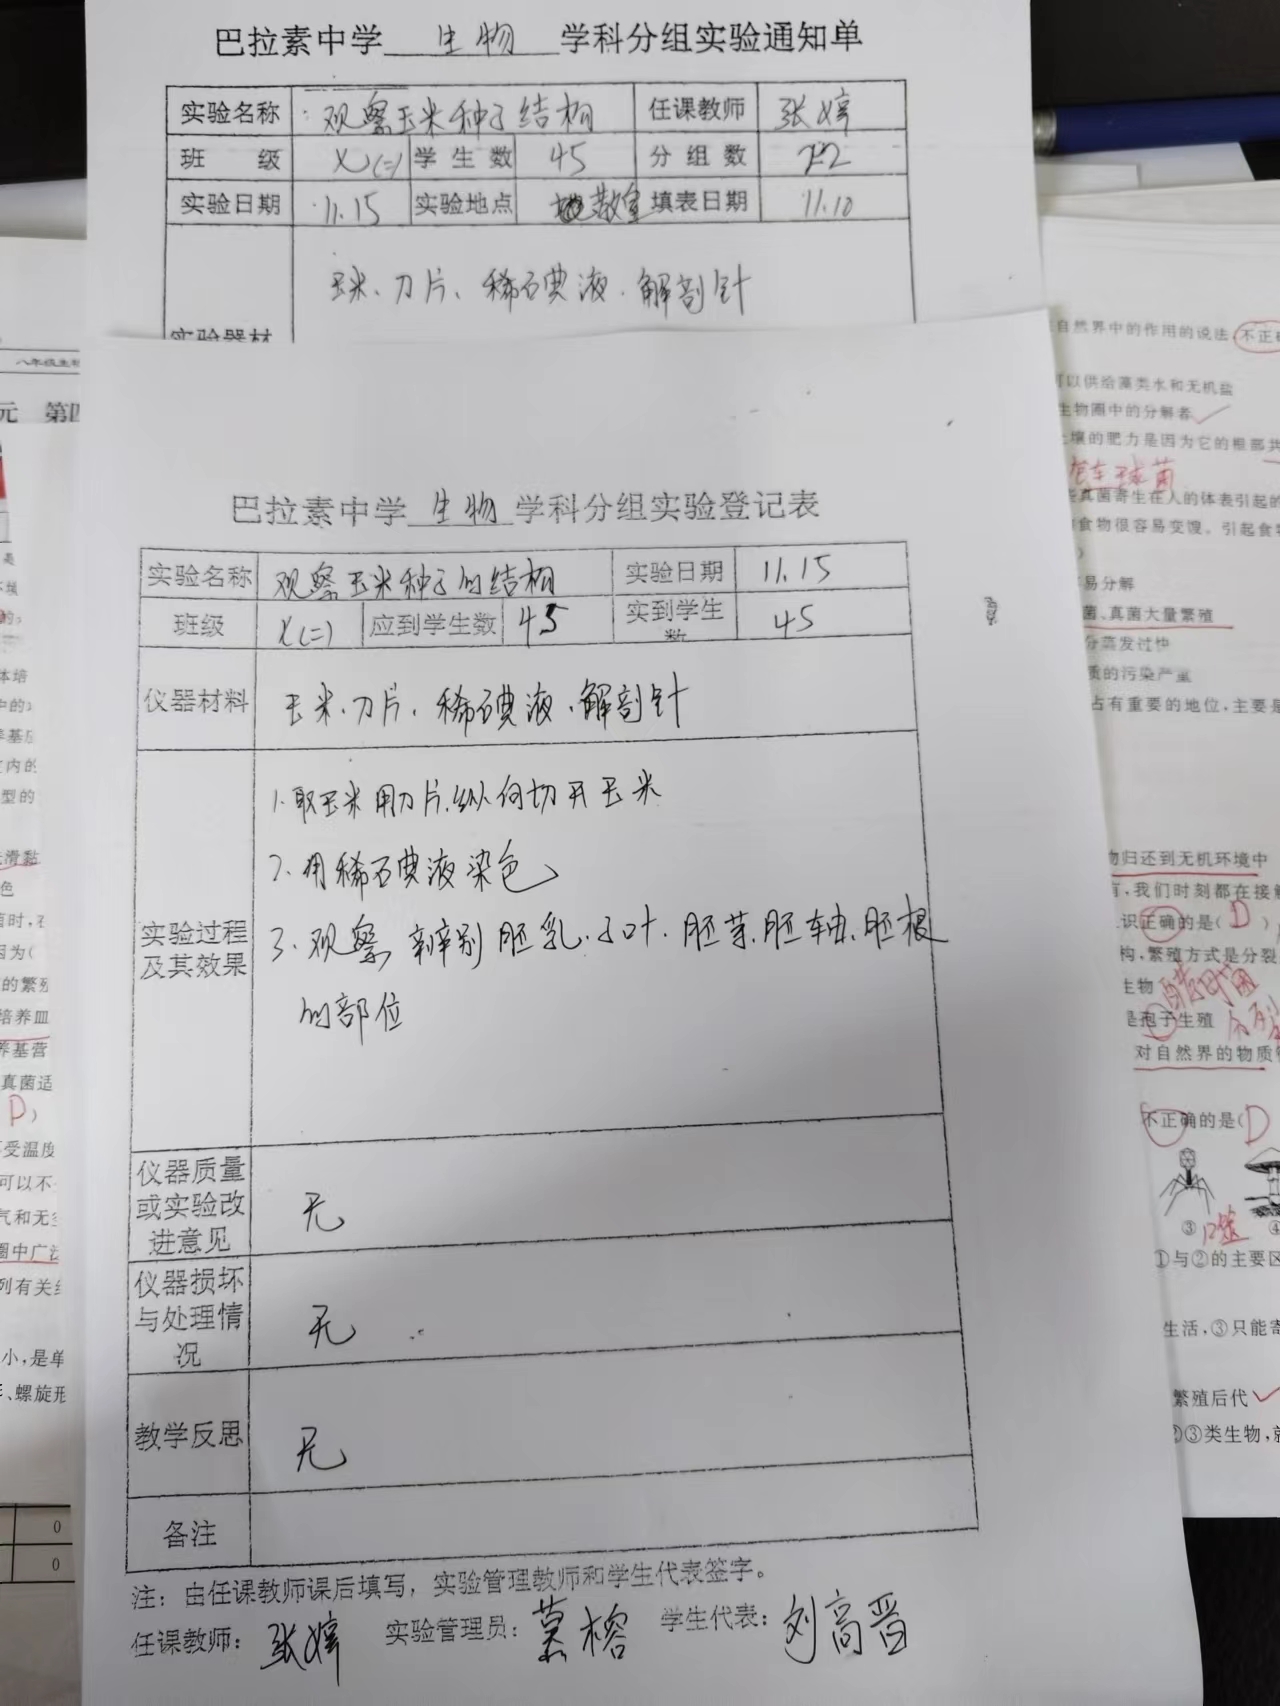 巴拉素中学 生物 学科分组实验通知单
实验名称 观察玉米种子结构 任课教师 张婷
班 级 X(二) 学生数 45 分组数 22
实验日期 11.15 实验地点 教室 填表日期 11.10
玉米、刀片、稀碘液、解剖针
实验器材
巴拉素中学 生物 学科分组实验登记表
实验名称 观察玉米种子的结构 实验日期 11.15
班级 X(二) 应到学生数 45 实到学生数 45
仪器材料 玉米、刀片、稀碘液、解剖针
1.取玉米用刀片纵向切开玉米
2.用稀碘液染色
实验过程及其效果
3.观察 辨别胚乳、子叶、胚芽、胚轴、胚根
的部位
仪器质量或实验改进意见 无
仪器损坏与处理情况 无
教学反思 无
备注
注：由任课教师课后填写，实验管理教师和学生代表签字。
任课教师：张婷 实验管理员：慕榕 学生代表：刘高晋
八年级生
元 第四
滑黏
色
的繁殖
培养皿
养基营
真菌适
D）
受温度
可以不
气和无
圈中广泛
列有关
小，是单
、螺旋形
0
0
自然界中的作用的说法，不正确
可以供给藻类水和无机盐
生物圈中的分解者
壤的肥力是因为它的根部共
真菌寄生在人的体表引起的
食物很容易变馊。引起食
易分解
菌、真菌大量繁殖
分蒸发过快
质的污染严重
占有重要的地位，主要是
物归还到无机环境中
，我们时刻都在接触
识正确的是（D）
构，繁殖方式是分裂
生物 酵母菌
是孢子生殖
对自然界的物质
不正确的是（D
③ ④
①与②的主要区
生活，③只能寄
繁殖后代
②③类生物，